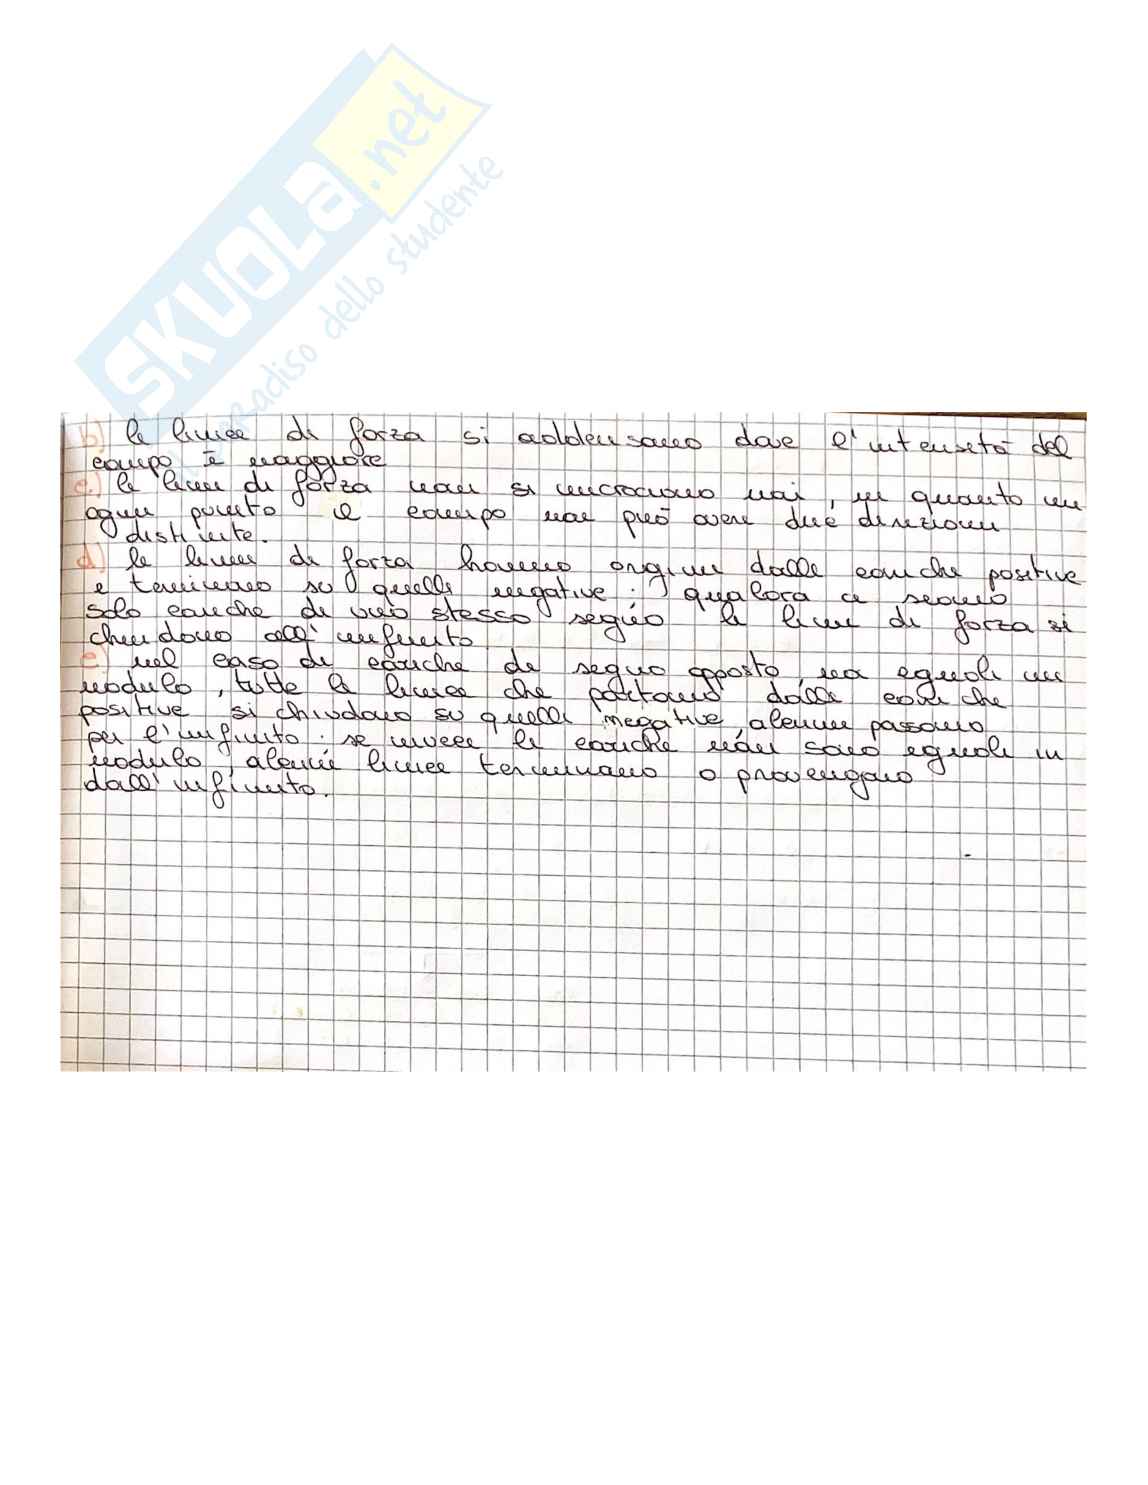 SKUOLa.net
paradiso dello studente
b) le linee di forza si addensano dove l'intensità del
campo è maggiore
c.) le linee di forza non si incrociano mai, in quanto in
ogni punto il campo non può avere due direzioni
distinte.
d) le linee di forza hanno origine dalle cariche positive
e terminano su quelle negative; qualora ci siano
solo cariche di uno stesso segno le linee di forza si
chiudono all'infinito
e) nel caso di cariche di segno opposto, ma eguali in
modulo, tutte le linee che partono dalle cariche
positive si chiudono su quelle negative, alcune passano
per l'infinito: se invece le cariche non sono eguali in
modulo, alcune linee terminano o provengano
dall'infinito.